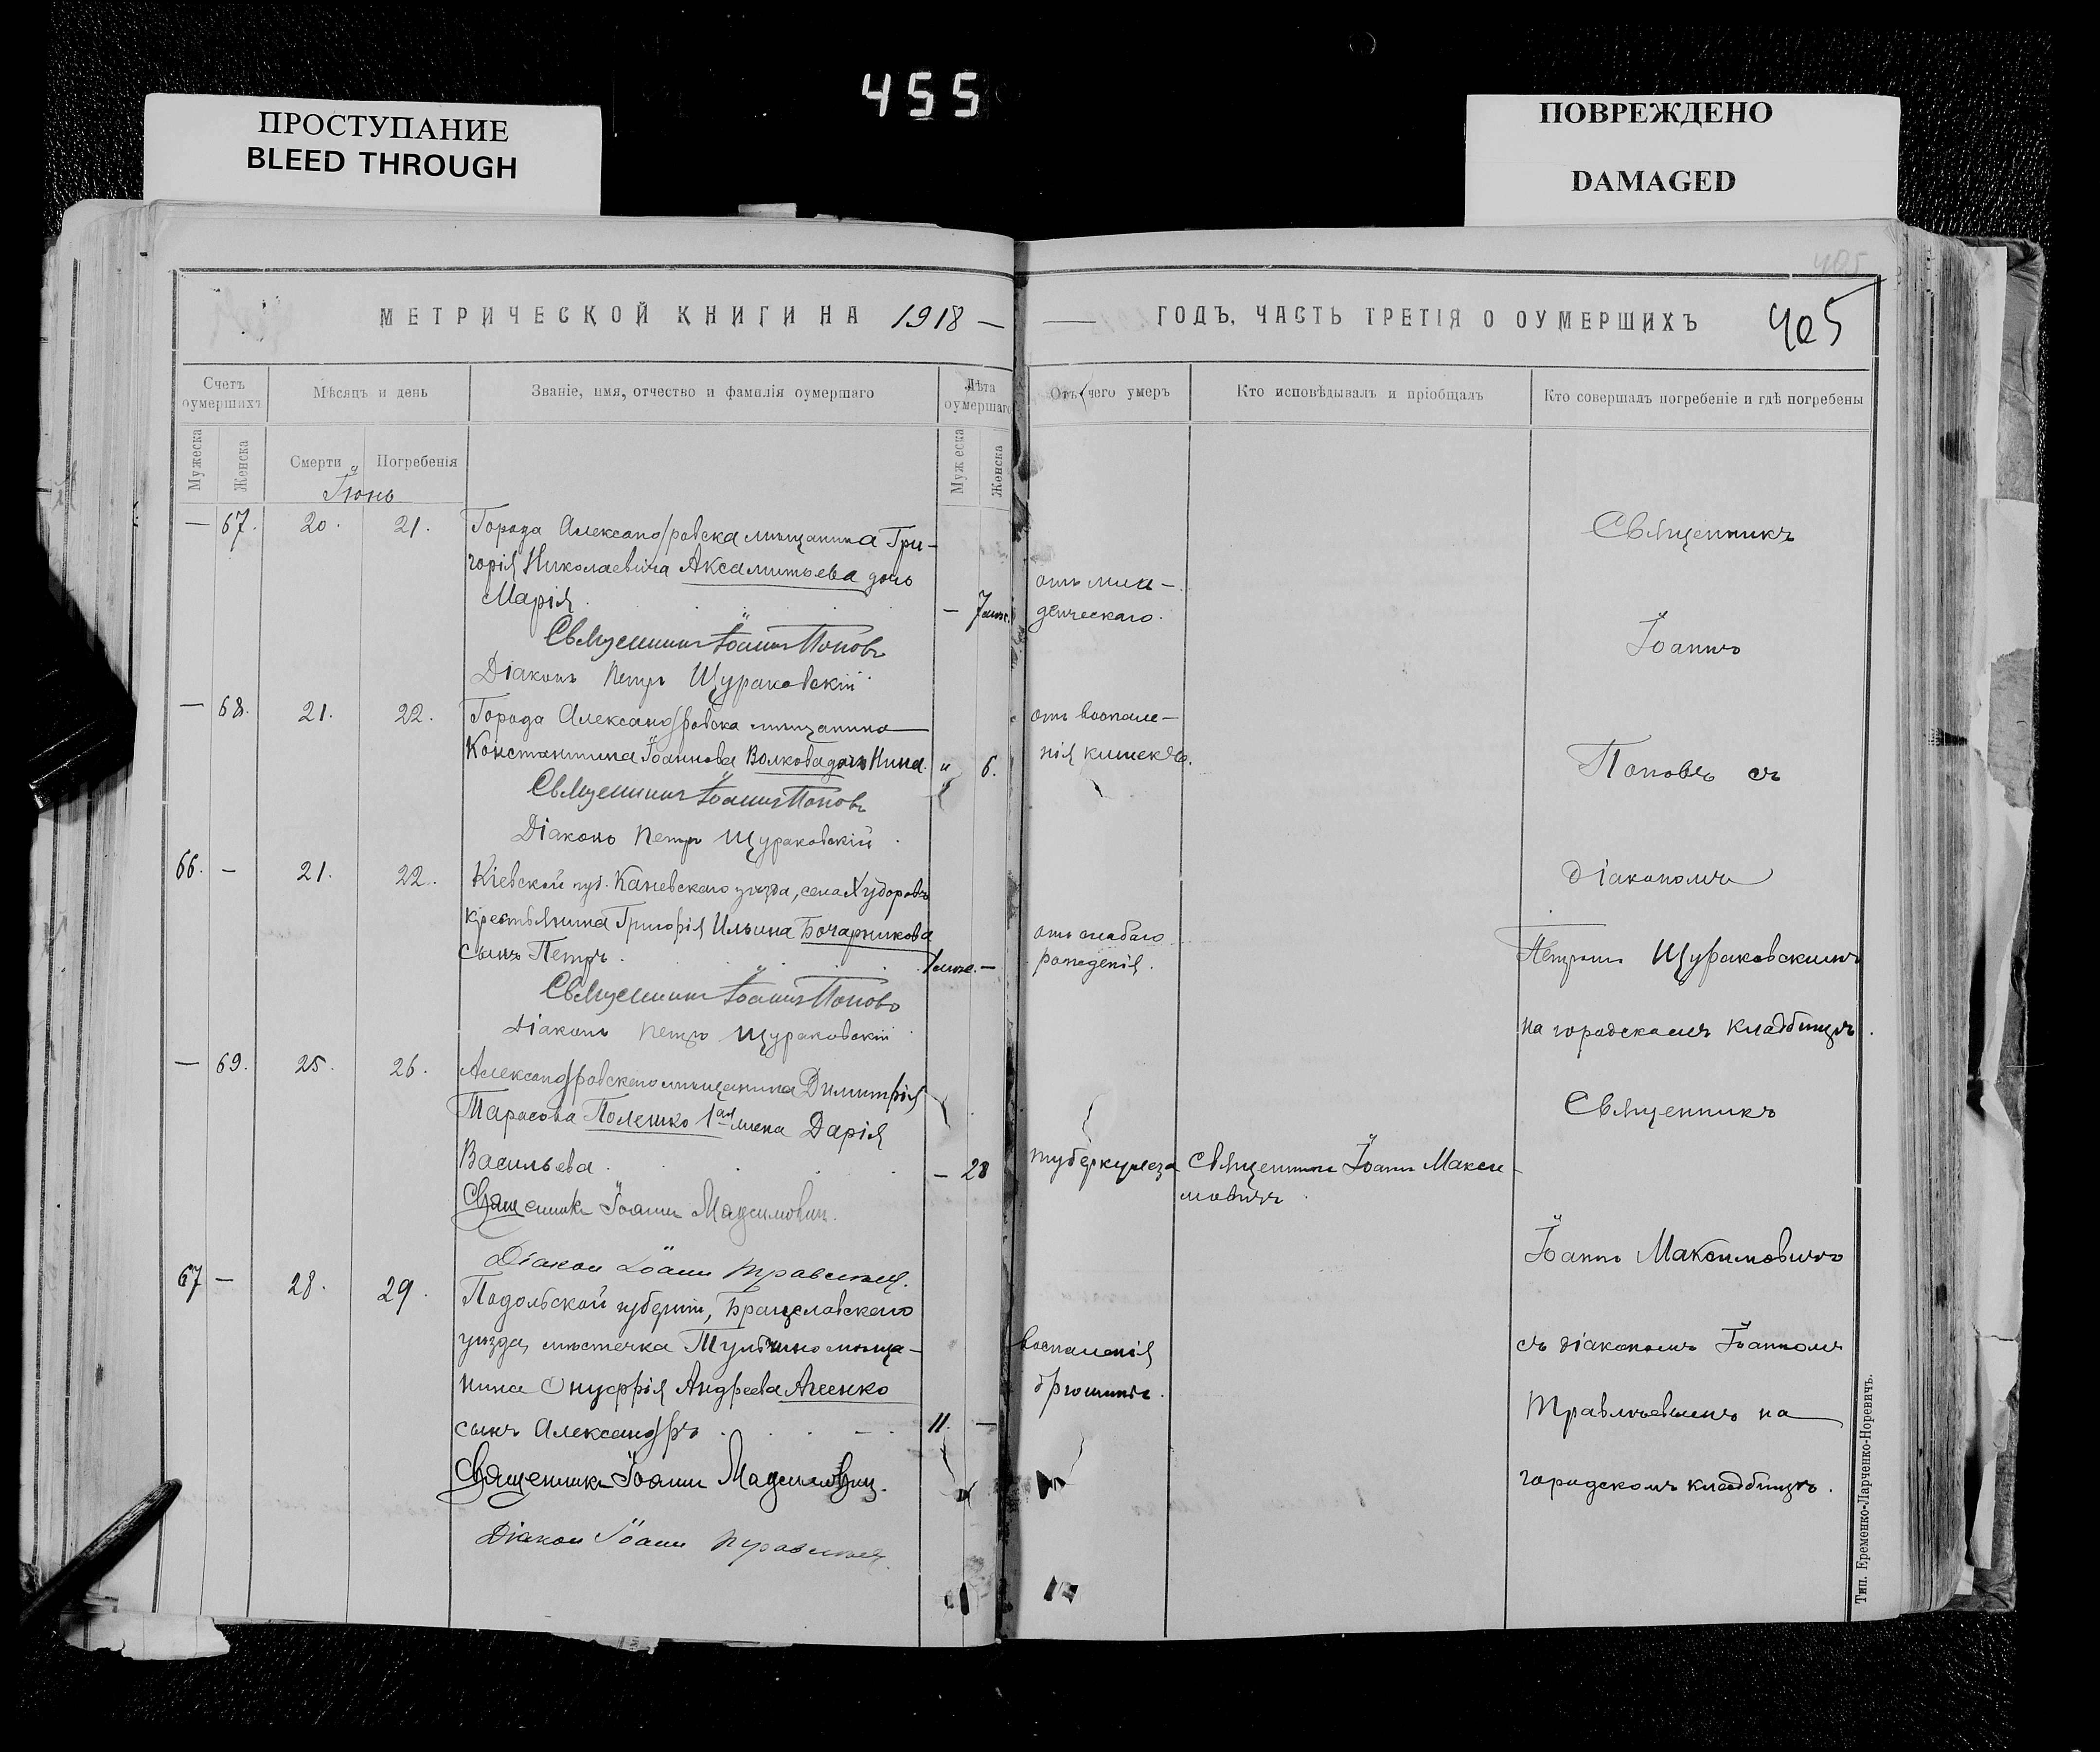 455
ПРОСТУПАНИЕ
BLEED THROUGH
ПОВРЕЖДЕНО
DAMAGED
МЕТРИЧЕСКОЙ КНИГИ НА 1918 —
— ГОДЪ, ЧАСТЬ ТРЕТІЯ О ОУМЕРШИХЪ
405
405
Счетъ оумершихъ
Мѣсяцъ и день
Званіе, имя, отчество и фамилія оумершаго
Лѣта оумершаго
Отъ чего умеръ
Кто исповѣдывалъ и пріобщалъ
Кто совершалъ погребеніе и гдѣ погребены
Мужеска
Женска
Смерти
Погребенія
Мужеска
Женска
Іюнь
— 67. 20. 21. Города Александровска мѣщанина Гри-
горія Николаевича Аксаментьева дочь
Марія. — 7
от мла-
денческаго.
Священникъ Іоаннъ Поповъ
Діаконъ Петръ Щураковскій
— 68. 21. 22. Города Александровска мѣщанина
Константина Іоаннова Волкова дочь Нина. " 6.
отъ воспале-
нія кишекъ.
Священникъ Іоаннъ Поповъ
Діаконъ Петръ Щураковскій
66. — 21. 22. Кіевской губ. Каневскаго уѣзда, села Ходоровъ
крестьянина Григорія Ильина Бочарникова
сынъ Петръ. —
отъ слабаго
рожденія.
Священникъ Іоаннъ Поповъ
Діаконъ Петръ Щураковскій
— 69. 25. 26. Александровскаго мѣщанина Димитрія
Тарасова Полешко 1ая жена Дарія
Васильева. — 28
туберкулеза
Священникъ Іоаннъ Макси-
мовичъ.
Священникъ Іоаннъ Максимович.
Діакон Іоанн
67 — 28. 29. Подольской губерніи, Брацславскаго
уѣзда, мѣстечка Тульчино мѣща-
нина Онуфрія Андреева
сынъ Александръ. 11. —
воспаленія
брюшины.
Священникъ Іоаннъ Максимович.
Діакон Іоанн
Священникъ
Іоаннъ
Поповъ съ
діакономъ
Петромъ Щураковскимъ
на городскомъ кладбищѣ.
Священникъ
Іоаннъ Максимовичъ
съ діакономъ Іоанномъ
на
городскомъ кладбищѣ.
Тип. Еременко-Ларченко-Норевичъ.